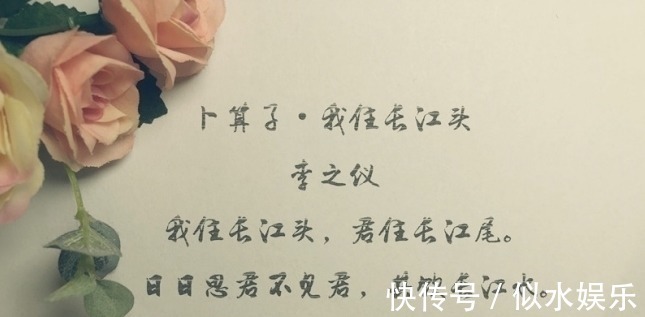 卜算子·我住长江头
李之仪
我住长江头，君住长江尾。
日日思君不见君，共饮长江水。
快传号 / 似水娱乐